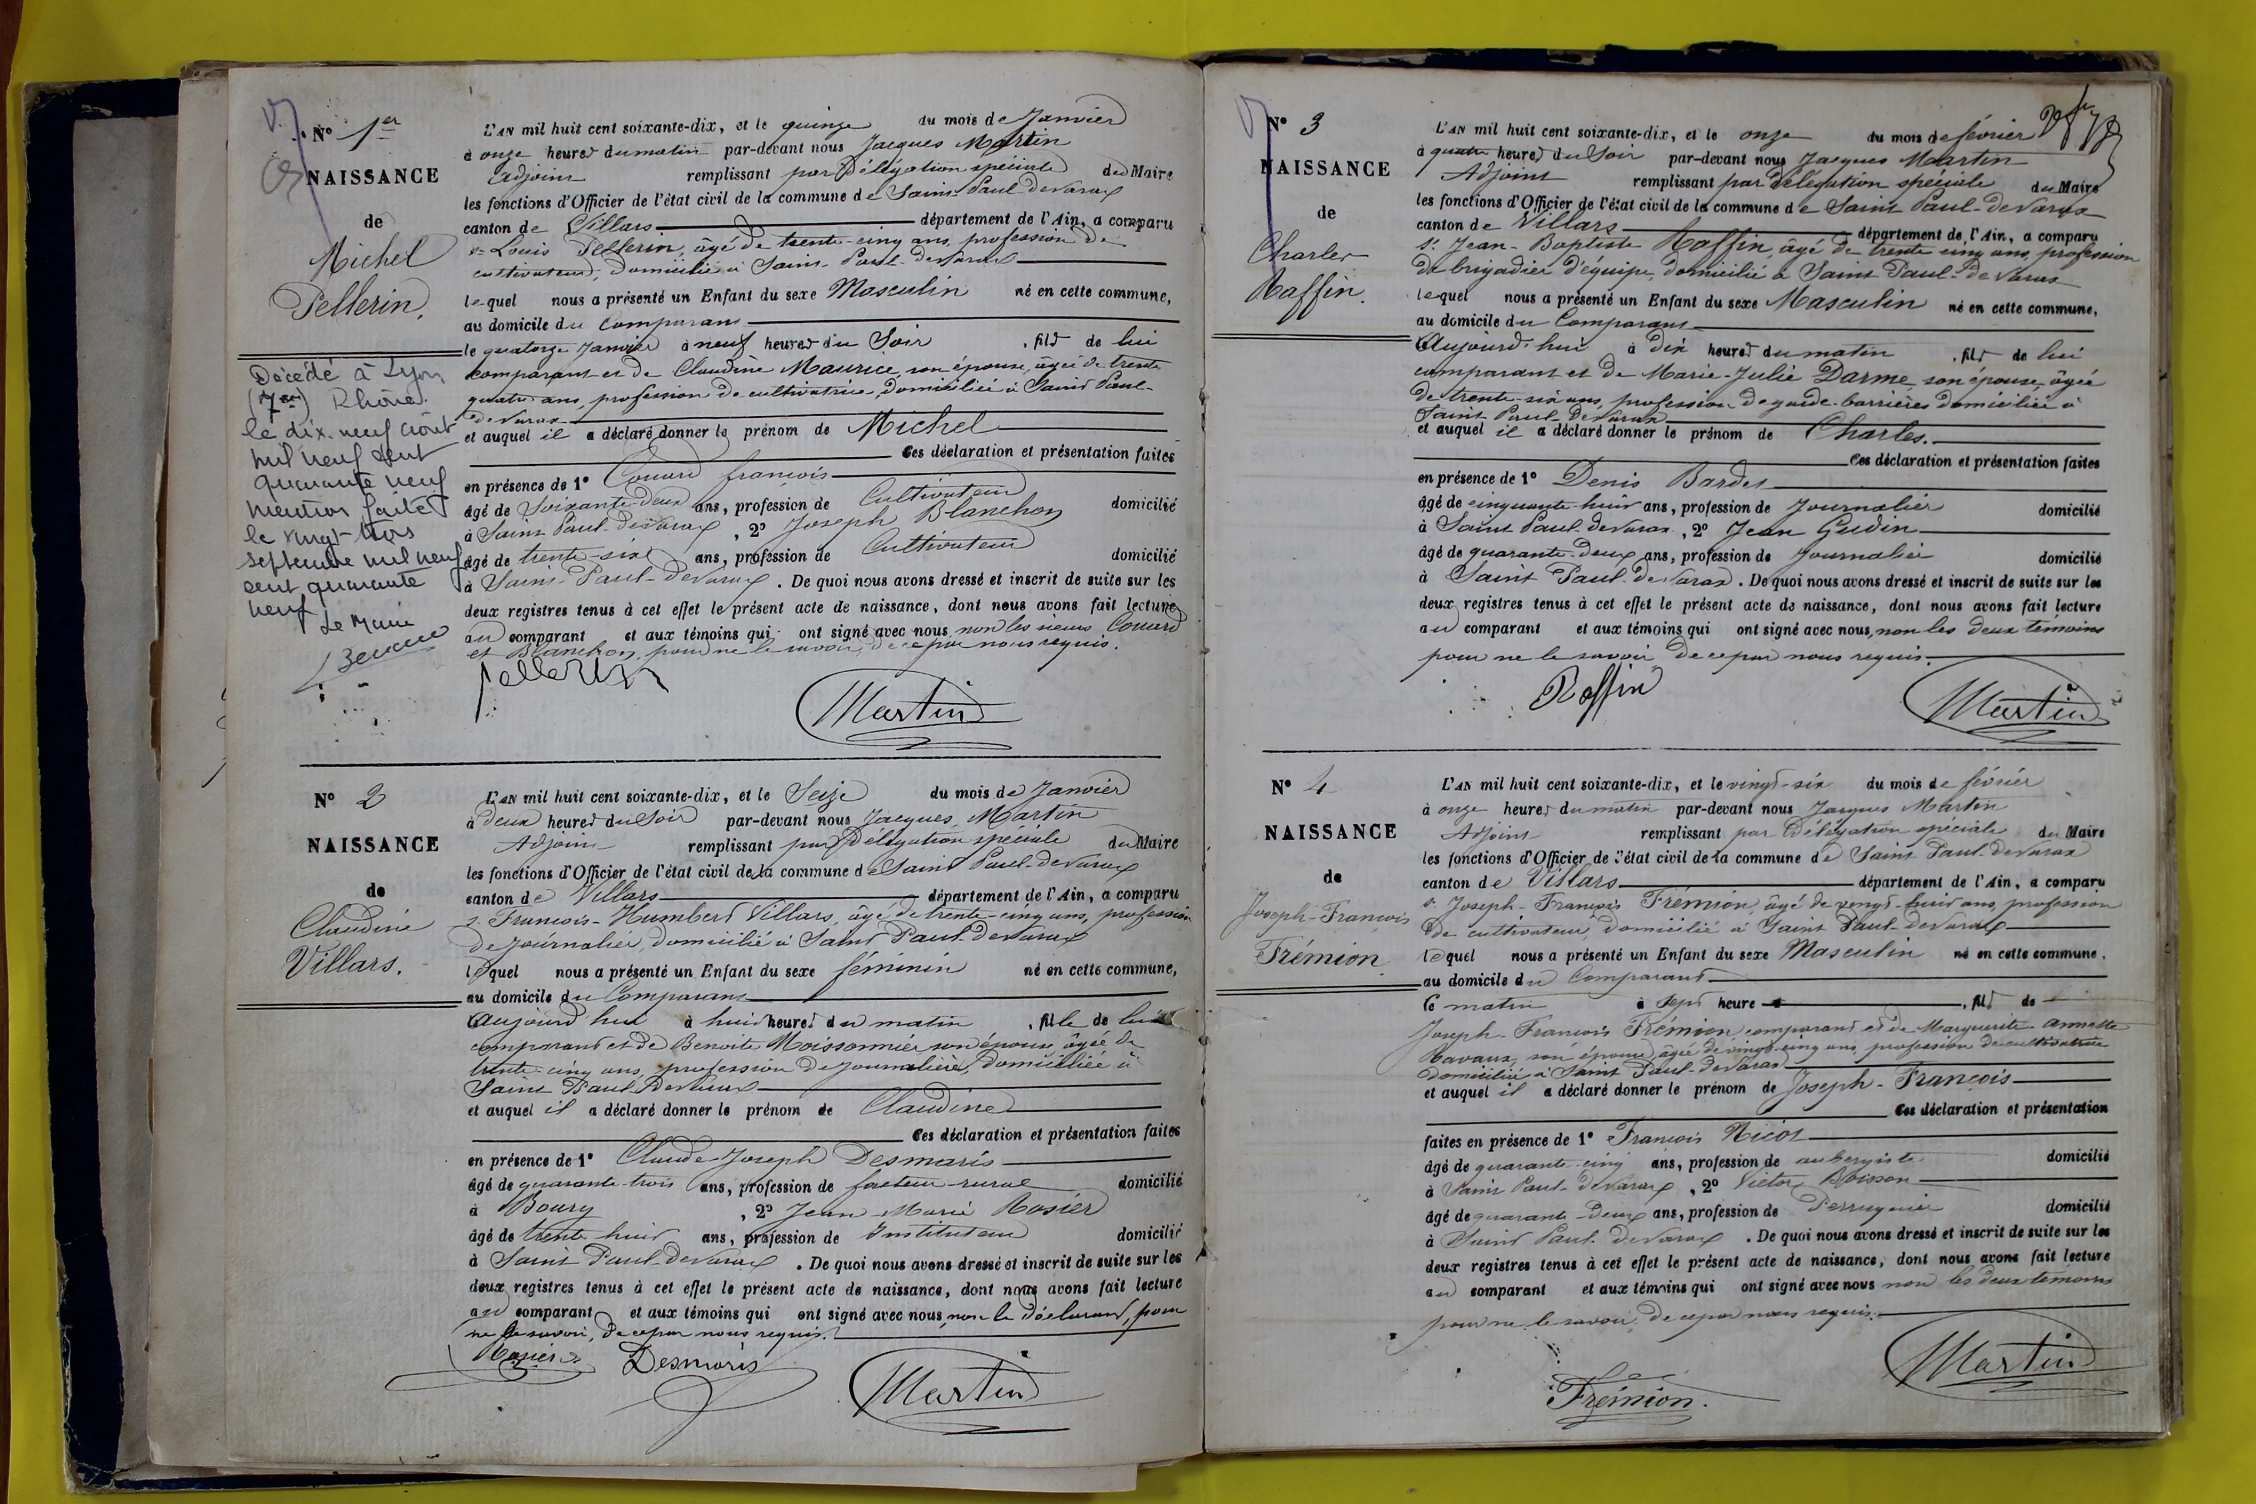 N° 1er
NAISSANCE
de
Michel
Pellerin.
Décédé à Lyon
(7me) Rhône
le dix-neuf août
mil neuf cent
quarante neuf
mention faite
le vingt-trois
septembre mil neuf
cent quarante
neuf
Le Maire
L'AN mil huit cent soixante-dix, et le quinze du mois de Janvier
à onze heures du matin par-devant nous Jacques Martin
Adjoint remplissant par Délégation spéciale du Maire
les fonctions d'Officier de l'état civil de la commune de Saint Paul-de Varax
canton de Villars département de l'Ain, a comparu
sr Louis Pellerin, âgé de trente-cinq ans, profession de
cultivateur, domicilié à Saint-Paul-de Varax
lequel nous a présenté un Enfant du sexe Masculin né en cette commune,
au domicile du Comparant
le quatorze Janvier à neuf heures du Soir, fils de lui
comparant et de Claudine Maurice, son épouse, âgée de trente
quatre ans, profession de cultivatrice, domiciliée à Saint Paul-
de Varax
et auquel il a déclaré donner le prénom de Michel
Ces déclaration et présentation faites
en présence de 1° Couard francois
âgé de Soixante-deux ans, profession de Cultivateur domicilié
à Saint Paul-de Varax, 2° Joseph Blanchon
âgé de trente-six ans, profession de Cultivateur domicilié
à Saint-Paul-de Varax. De quoi nous avons dressé et inscrit de suite sur les
deux registres tenus à cet effet le présent acte de naissance, dont nous avons fait lecture
au comparant et aux témoins qui ont signé avec nous, non les sieurs Couard
et Blanchon, pour ne le savoir, de ce par nous requis.
Pellerin
Martin
N° 2
NAISSANCE
de
Claudine
Villars.
L'AN mil huit cent soixante-dix, et le Seize du mois de Janvier
à deux heures du Soir par-devant nous Jacques Martin
Adjoint remplissant par Délégation spéciale du Maire
les fonctions d'Officier de l'état civil de la commune de Saint Paul-de Varax
canton de Villars département de l'Ain, a comparu
sr Francois-Humbert Villars, âgé de trente-cinq ans, profession
de journalier, domicilié à Saint Paul-de Varax
lequel nous a présenté un Enfant du sexe féminin né en cette commune,
au domicile du Comparant
Aujourd'hui à huit heures du matin, fille de lui
comparant et de Benoite Moissonnier son épouse, âgée de
trente-cinq ans, profession de journalière, domiciliée à
Saint Paul De Varax
et auquel il a déclaré donner le prénom de Claudine
Ces déclaration et présentation faites
en présence de 1° Claude-Joseph Desmaris
âgé de quarante-trois ans, profession de facteur-rural domicilié
à Bourg, 2° Jean-Marie Rosier
âgé de trente-huit ans, profession de Instituteur domicilié
à Saint Paul-de Varax. De quoi nous avons dressé et inscrit de suite sur les
deux registres tenus à cet effet le présent acte de naissance, dont nous avons fait lecture
au comparant et aux témoins qui ont signé avec nous, non le déclarant, pour
ne le savoir, de ce par nous requis.
Rosier
Desmaris
Martin
N° 3
NAISSANCE
de
Charles
Raffin.
L'AN mil huit cent soixante-dix, et le onze du mois de février
à quatre heures du Soir par-devant nous Jacques Martin
Adjoint remplissant par délégation spéciale du Maire
les fonctions d'Officier de l'état civil de la commune de Saint Paul-de Varax
canton de Villars département de l'Ain, a comparu
sr Jean-Baptiste Raffin, âgé de trente cinq ans, profession
de brigadier d'équipe, domicilié à Saint Paul-de Varax
lequel nous a présenté un Enfant du sexe Masculin né en cette commune,
au domicile du Comparant
Aujourd'hui à dix heures du matin, fils de lui
comparant et de Marie-Julie Darme, son épouse, âgée
de trente-six ans, profession de garde-barrières domiciliée à
Saint Paul-de Varax
et auquel il a déclaré donner le prénom de Charles.
Ces déclaration et présentation faites
en présence de 1° Denis Bardet
âgé de cinquante-huit ans, profession de Journalier domicilié
à Saint Paul-de Varax, 2° Jean Gudin
âgé de quarante-deux ans, profession de Journalier domicilié
à Saint Paul-de Varax. De quoi nous avons dressé et inscrit de suite sur les
deux registres tenus à cet effet le présent acte de naissance, dont nous avons fait lecture
au comparant et aux témoins qui ont signé avec nous, non les deux témoins
pour ne le savoir de ce par nous requis.
Raffin
Martin
N° 4
NAISSANCE
de
Joseph-François
Frémion
L'AN mil huit cent soixante-dix, et le vingt-six du mois de février
à onze heures du matin par-devant nous Jacques Martin
Adjoint remplissant par Délégation spéciale du Maire
les fonctions d'Officier de l'état civil de la commune de Saint Paul-de Varax
canton de Villars département de l'Ain, a comparu
sr Joseph-François Frémion, âgé de vingt-huit ans, profession
de cultivateur, domicilié à Saint Paul-de Varax
lequel nous a présenté un Enfant du sexe Masculin né en cette commune.
au domicile du Comparant
Ce matin à Sept heure, fils de
Joseph-Francois Frémion comparant et de Marguerite-annette
Ravaux, son épouse, âgée de vingt-cinq ans, profession de cultivatrice
domiciliée à Saint Paul-de Varax
et auquel il a déclaré donner le prénom de Joseph-François
Ces déclaration et présentation
faites en présence de 1° François Nicot
âgé de quarante-cinq ans, profession de aubergiste domicilié
à Saint Paul-de Varax, 2° Victor Boisson
âgé de quarante-deux ans, profession de Perruquier domicilié
à Saint Paul-de Varax. De quoi nous avons dressé et inscrit de suite sur les
deux registres tenus à cet effet le présent acte de naissance, dont nous avons fait lecture
au comparant et aux témoins qui ont signé avec nous non les deux témoins
pour ne le savoir, de ce par nous requis.
Frémion.
Martin